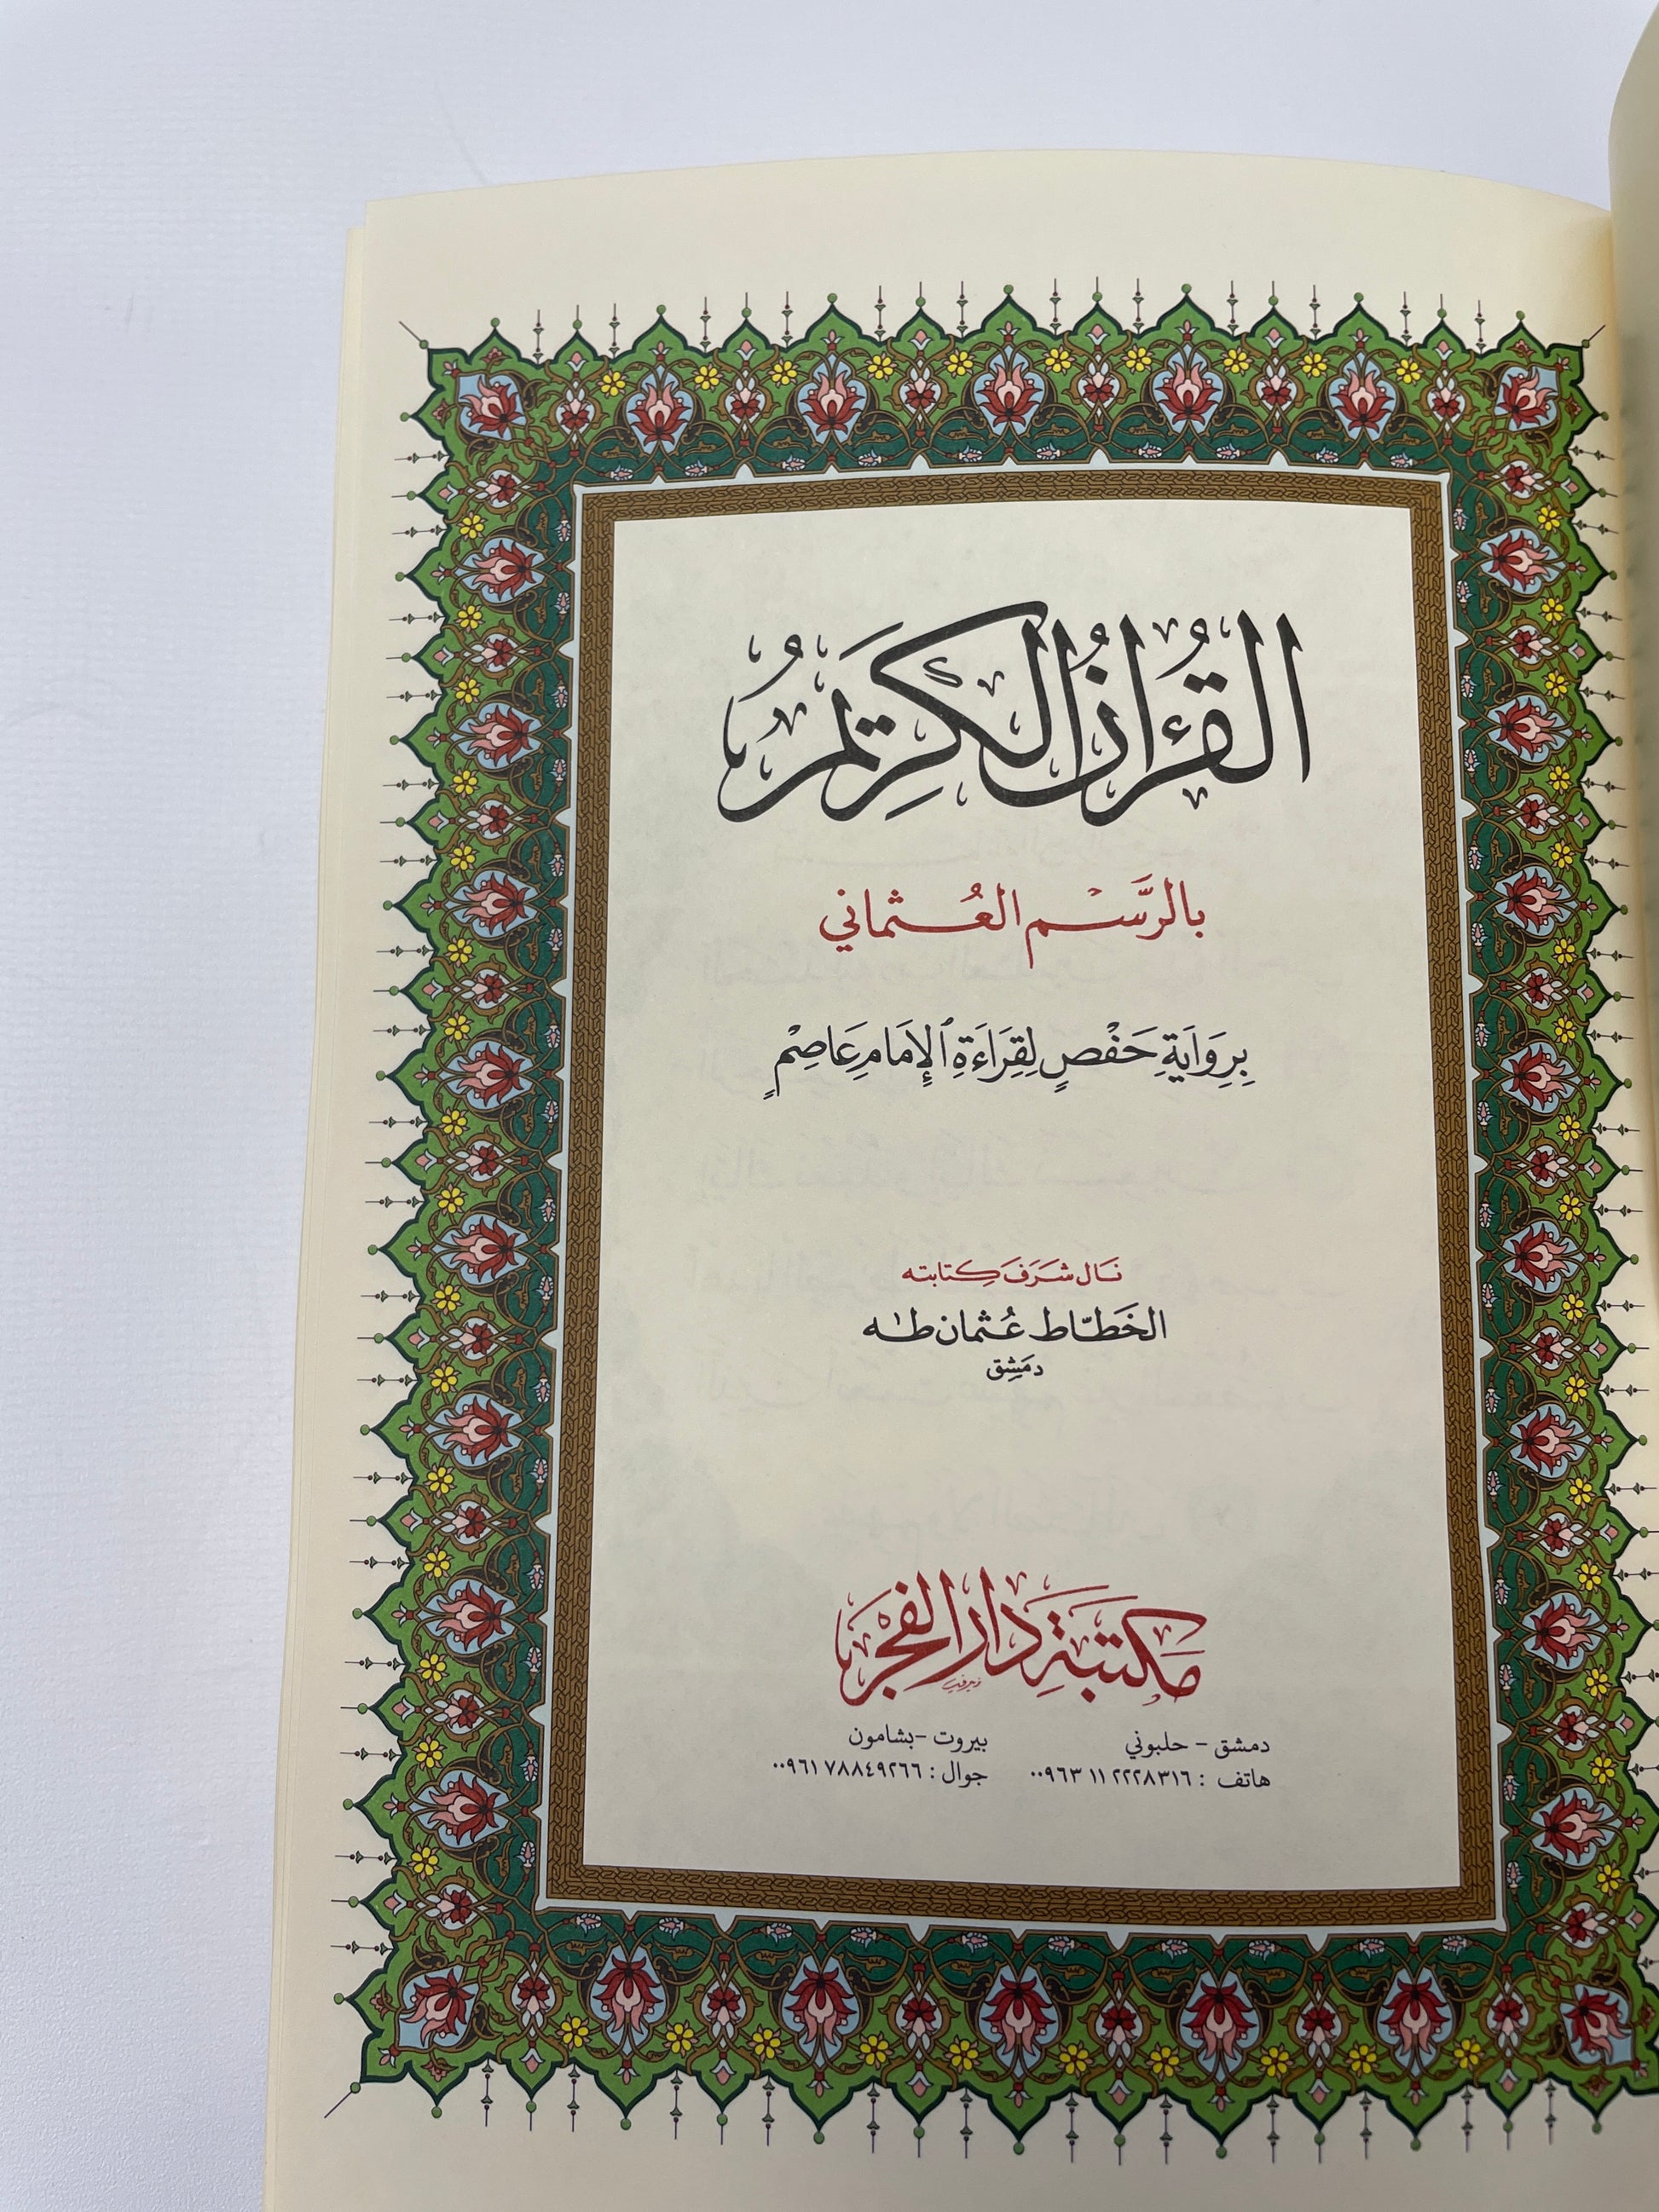 القُرءانُ الكَرِيمُ
بالرَّسْم العُثماني
بِرِوَايَةِ حَفْصٍ لِقِرَاءَةِ ٱلإِمَامِ عَاصِمٍ
نَال شَرَفَ كِتابته
الخَطَّاط عُثمان طٰه
دمَشِق
مَكتَبَة دَار الفَجْر
دمشق - حلبوني
هاتف : ٠٠٩٦٣ ١١ ٢٢٢٨٣١٦
بيروت -بشامون
جوال : ٠٠٩٦١ ٧٨٨٤٩٢٦٦